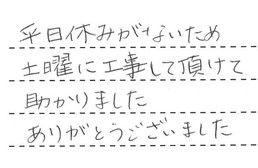 平日休みがないため
土曜に工事して頂けて
助かりました
ありがとうございました